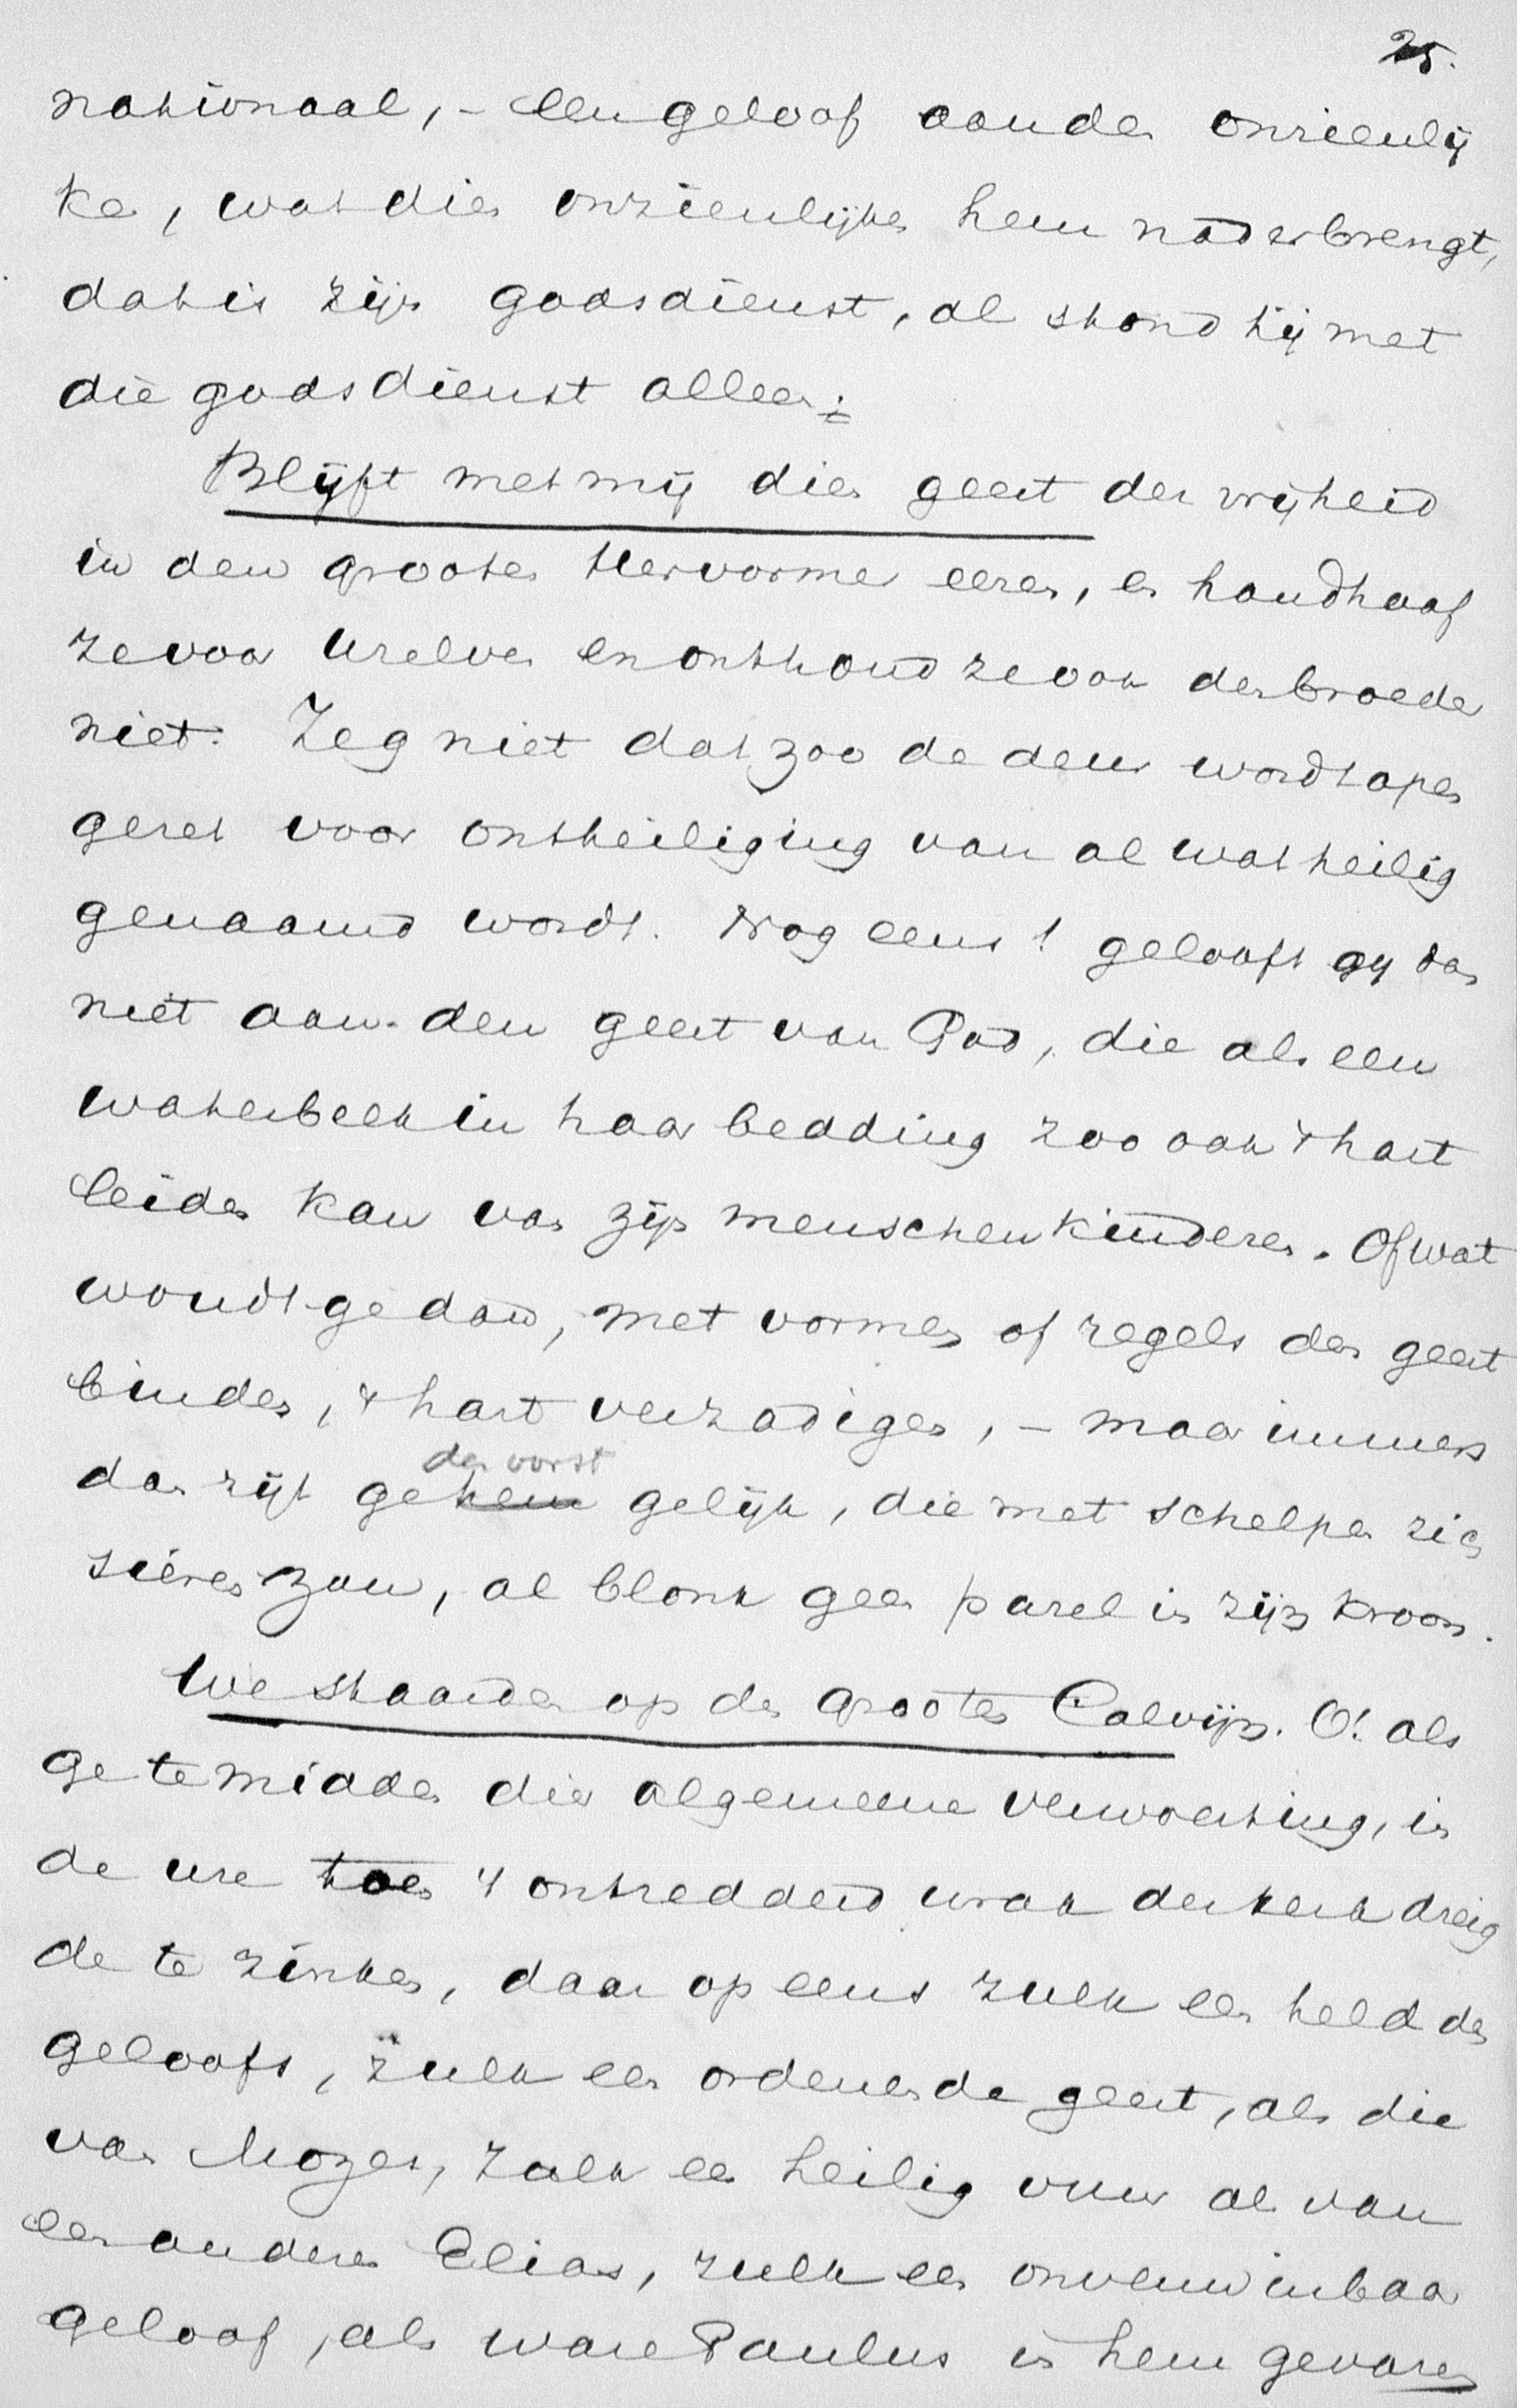 25.
nationaal, - Een geloof aan den onzienlij
ke, wat dien onzienlijken hem naderbrengt,
dat is zijn godsdienst, al stond hij met
die godsdienst alleen.
Blijft met mij dien geest der vrijheid
in den grooten Hervormer eeren, en handhaaf
ze voor Uzelven en onthoud ze ook den broeder
niet. Zeg niet dat zoo de deur wordt open
gezet voor ontheiliging van al wat heilig
genaamd wordt. Nog eens! gelooft gij dan
niet aan den geest van God, die als een
waterbeek in haar bedding zoo ook 't hart
leiden kan van zijn menschenkinderen. Of wat
woudt ge dan, met vormen of regels den geest
binden, 't hart verzadigen, - maar immers
dan zijt ge hem gelijk, die met schelpen zich
den vorst
sieren zou, al blonk geen parel in zijn kroon.
We staarden op den grooten Calvijn. O! als
ge te midden dier algemeene verwoesting, in
de ure toen 't ontredderd wrak der kerk dreig
de te zinken, daar op eens zulk een held des
geloofs, zulk een ordenende geest, als die
van Mozes, zulk een heilig vuur als van
een anderen Elias, zulk een onverwinbaar
geloof, als ware Paulus in hem gevaren